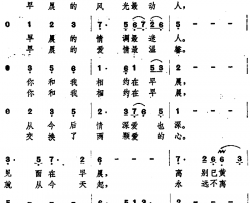 早晨的风光最动人，
0 1 2 3 7· 5 6 7 2 6 5 -
早晨的情调最迷人。
早晨的爱情最温馨。
0 3 5 6 1 6 1 5 3 2
你和我相约在早晨；
你和我相约在早晨；
0 2 3 5 2· 3 7 6 5 -
从今后情深爱也深。
变换了两颗爱的心。
3· 5 7 6 2 3 7· 2 6 6
见面在早晨 离别已黄
就从今天起， 永远不离